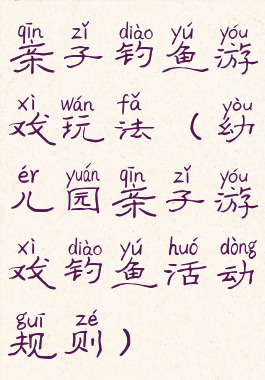 qīn zǐ diào yú yóu
亲子钓鱼游
xì wán fǎ yòu
戏玩法（幼
ér yuán qīn zǐ yóu
儿园亲子游
xì diào yú huó dòng
戏钓鱼活动
guī zé
规则）